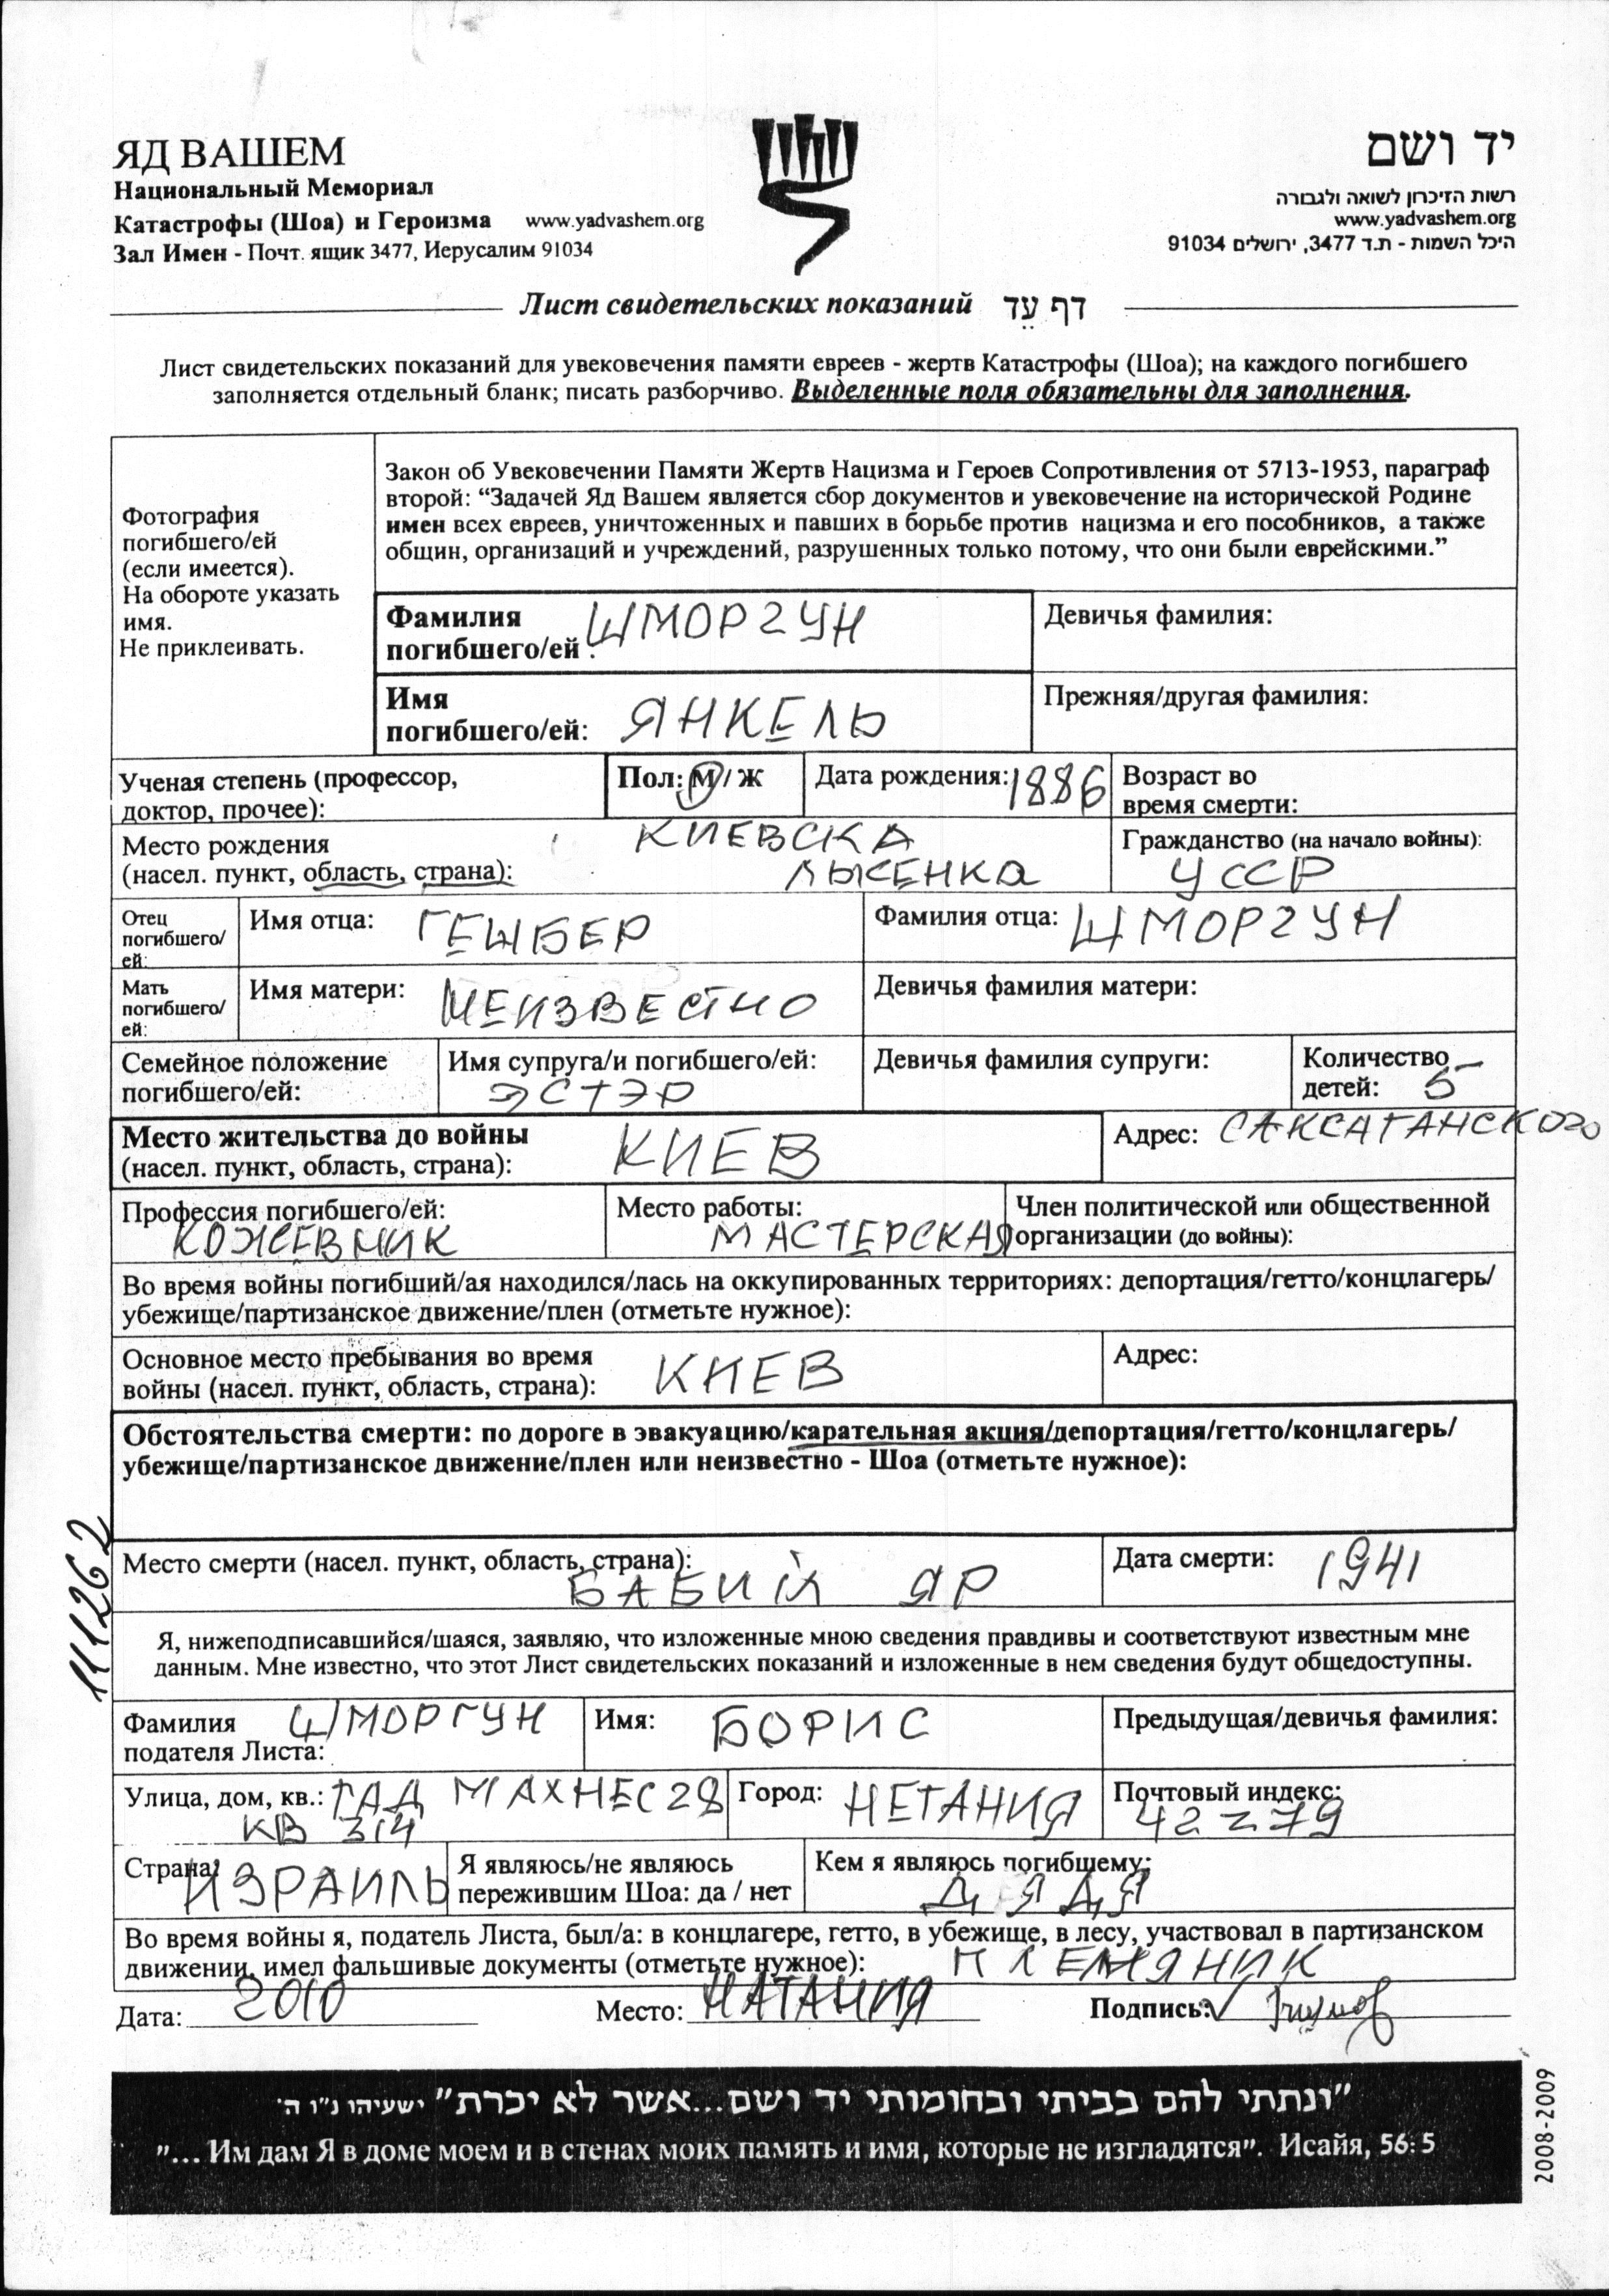 ЯД ВАШЕМ
Национальный Мемориал
Катастрофы (Шоа) и Героизма www.yadvashem.org
Зал Имен - Почт. ящик 3477, Иерусалим 91034
יד ושם
רשות הזיכרון לשואה ולגבורה
www.yadvashem.org
היכל השמות - ת.ד 3477, ירושלים 91034
Лист свидетельских показаний דף עֵד
Лист свидетельских показаний для увековечения памяти евреев - жертв Катастрофы (Шоа); на каждого погибшего
заполняется отдельный бланк; писать разборчиво. Выделенные поля обязательны для заполнения.
Фотография
погибшего/ей
(если имеется).
На обороте указать
имя.
Не приклеивать.
Закон об Увековечении Памяти Жертв Нацизма и Героев Сопротивления от 5713-1953, параграф
второй: “Задачей Яд Вашем является сбор документов и увековечение на исторической Родине
имен всех евреев, уничтоженных и павших в борьбе против нацизма и его пособников, а также
общин, организаций и учреждений, разрушенных только потому, что они были еврейскими.”
Фамилия
погибшего/ей : ШМОРГУН
Девичья фамилия:
Имя
погибшего/ей: ЯНКЕЛЬ
Прежняя/другая фамилия:
Ученая степень (профессор,
доктор, прочее):
Пол: М / Ж
Дата рождения: 1886
Возраст во
время смерти:
Место рождения КИЕВСКА
(насел. пункт, область, страна): ЛЫСЕНКА
Гражданство (на начало войны):
УССР
Отец
погибшего/
ей:
Имя отца: ГЕШБЕР
Фамилия отца: ШМОРГУН
Мать
погибшего/
ей:
Имя матери: НЕИЗВЕСТНО
Девичья фамилия матери:
Семейное положение
погибшего/ей:
Имя супруга/и погибшего/ей:
ЭСТЭР
Девичья фамилия супруги:
Количество
детей: 5
Место жительства до войны
(насел. пункт, область, страна): КИЕВ
Адрес: САКСАГАНСКОГО
Профессия погибшего/ей:
КОЖЕВНИК
Место работы:
МАСТЕРСКАЯ
Член политической или общественной
организации (до войны):
Во время войны погибший/ая находился/лась на оккупированных территориях: депортация/гетто/концлагерь/
убежище/партизанское движение/плен (отметьте нужное):
Основное место пребывания во время
войны (насел. пункт, область, страна): КИЕВ
Адрес:
Обстоятельства смерти: по дороге в эвакуацию/карательная акция/депортация/гетто/концлагерь/
убежище/партизанское движение/плен или неизвестно - Шоа (отметьте нужное):
111262
Место смерти (насел. пункт, область, страна):
БАБИЙ ЯР
Дата смерти: 1941
Я, нижеподписавшийся/шаяся, заявляю, что изложенные мною сведения правдивы и соответствуют известным мне
данным. Мне известно, что этот Лист свидетельских показаний и изложенные в нем сведения будут общедоступны.
Фамилия ШМОРГУН
подателя Листа:
Имя: БОРИС
Предыдущая/девичья фамилия:
Улица, дом, кв.: ГАД МАХНЕС 28
КВ 314
Город: НЕТАНИЯ
Почтовый индекс:
42279
Страна: ИЗРАИЛЬ
Я являюсь/не являюсь
пережившим Шоа: да / нет
Кем я являюсь погибшему:
ДЯДЯ
Во время войны я, податель Листа, был/а: в концлагере, гетто, в убежище, в лесу, участвовал в партизанском
движении, имел фальшивые документы (отметьте нужное): ПЛЕМЯНИК
Дата: 2010 Место: НАТАНИЯ Подпись:
"ונתתי להם בביתי ובחומותי יד ושם...אשר לא יכרת" ישעיהו נ"ו ה'
"... Им дам Я в доме моем и в стенах моих память и имя, которые не изгладятся". Исайя, 56: 5
2008-2009